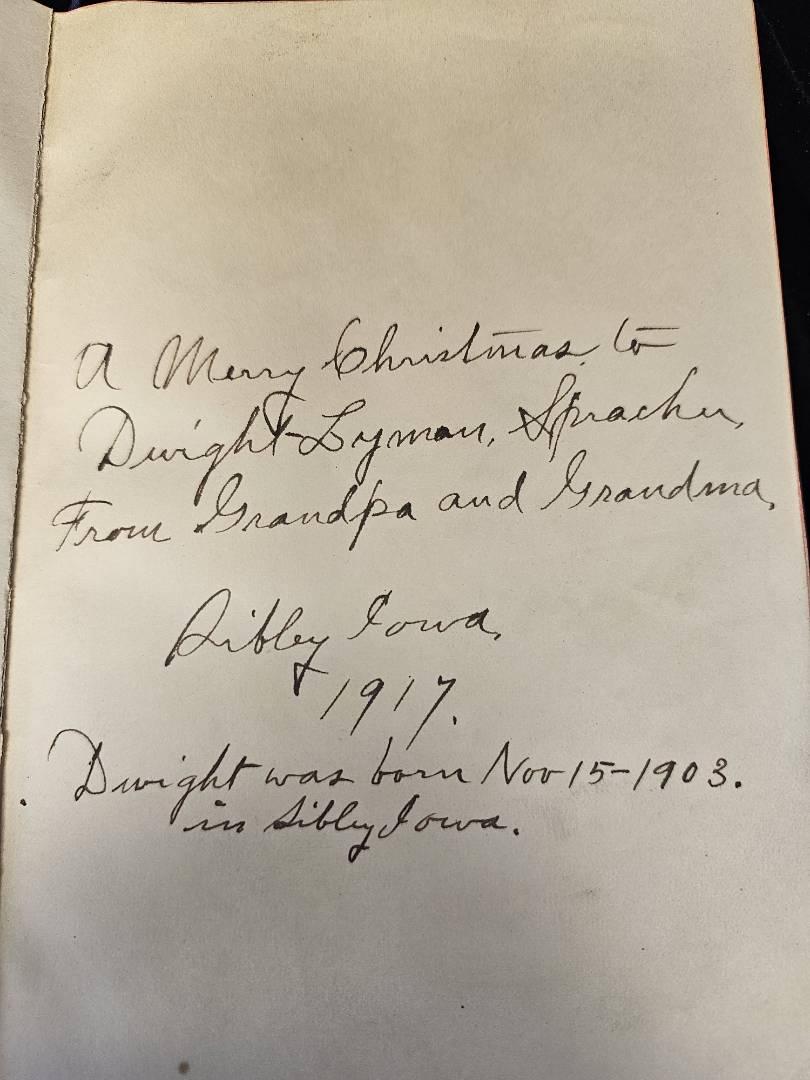 A Merry Christmas, to
Dwight Lyman, Spracher,
From Grandpa and Grandma,
Sibley Iowa,
1917.
Dwight was born Nov 15-1903.
in Sibley Iowa.